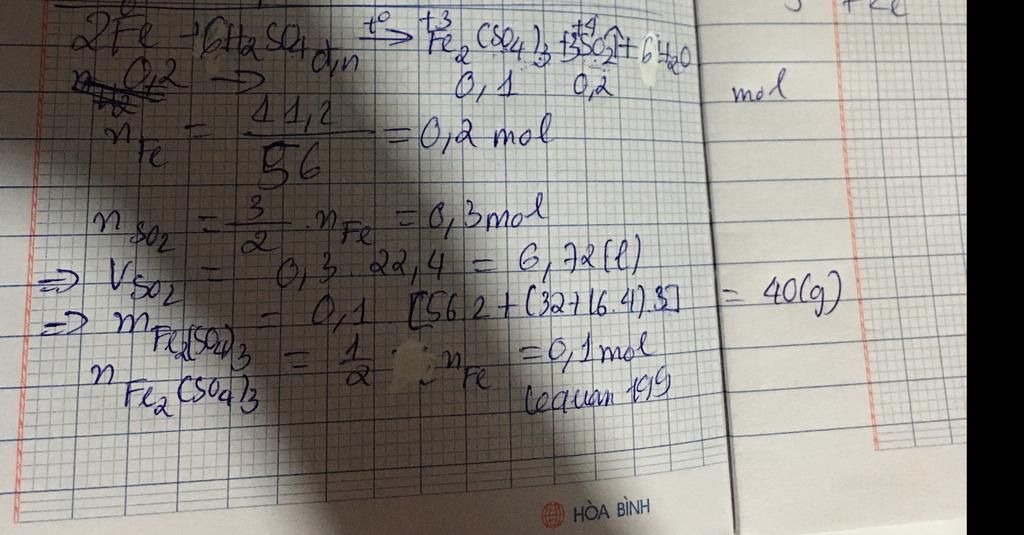 2Fe + 6H2SO4 đ,n t° → +3 Fe2(SO4)3 + 3 +4 SO2↑ + 6H2O
0,2 → 0,1 0,2 mol
nFe = 11,2 / 56 = 0,2 mol
nSO2 = 3/2 . nFe = 0,3 mol
=> VSO2 = 0,3 . 22,4 = 6,72 (l)
=> mFe2(SO4)3 = 0,1 [56.2 + (32+16.4).3] = 40(g)
nFe2(SO4)3 = 1/2 nFe = 0,1 mol
lequan 199
HÒA BÌNH